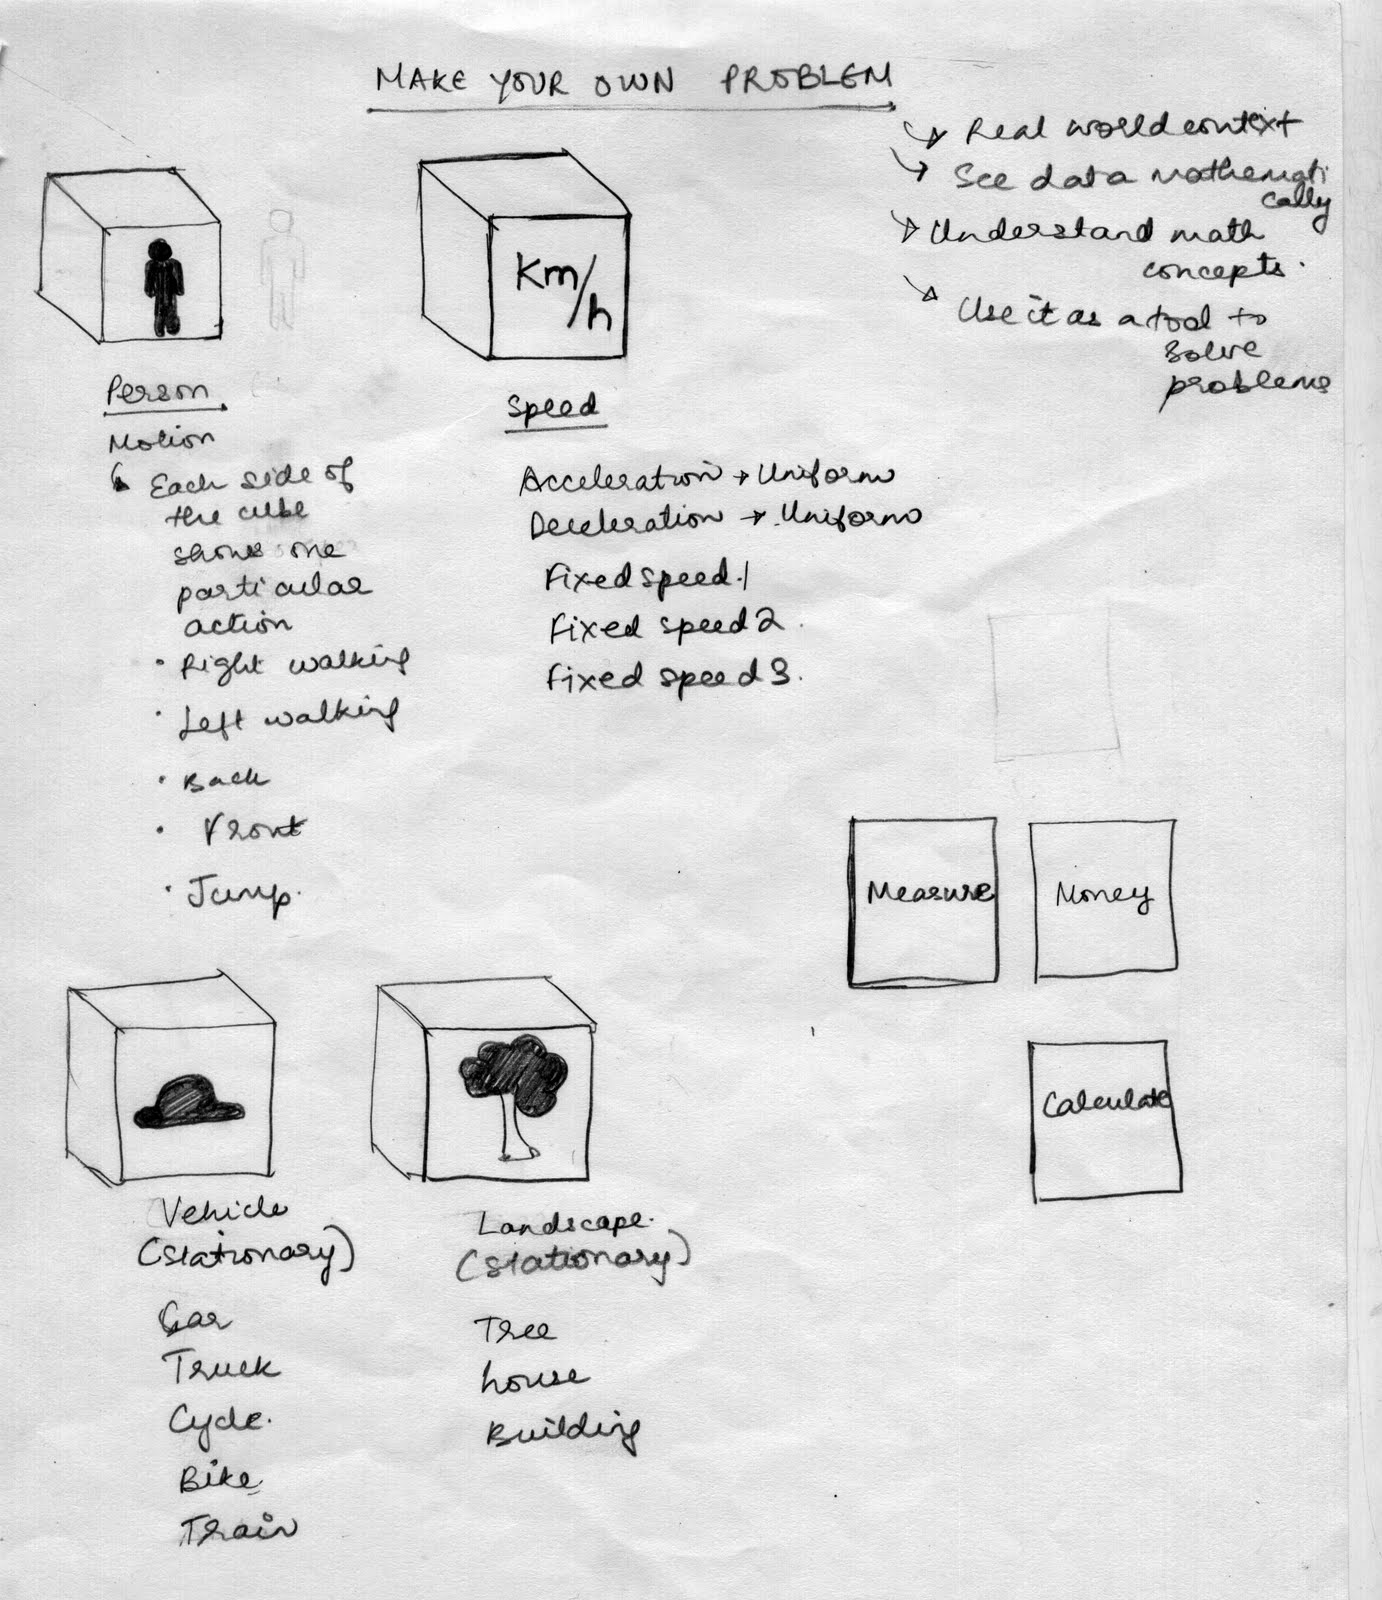 MAKE YOUR OWN PROBLEM
→ Real world context
→ See data mathemati
cally
→ Understand math
concepts.
→ Use it as a tool to
solve
problems
Km/h
Person
Motion
→ Each side of
the cube
shows one
particular
action
• Right walking
• Left walking
• Back
• Front
• Jump.
Speed
Acceleration → Uniform
Deceleration → Uniform
Fixed speed.1
Fixed speed 2.
Fixed speed 3.
Measure
Money
Calculate
Vehicle
(stationary)
Car
Truck
Cycle.
Bike
Train
Landscape.
(stationary)
Tree
house
Building